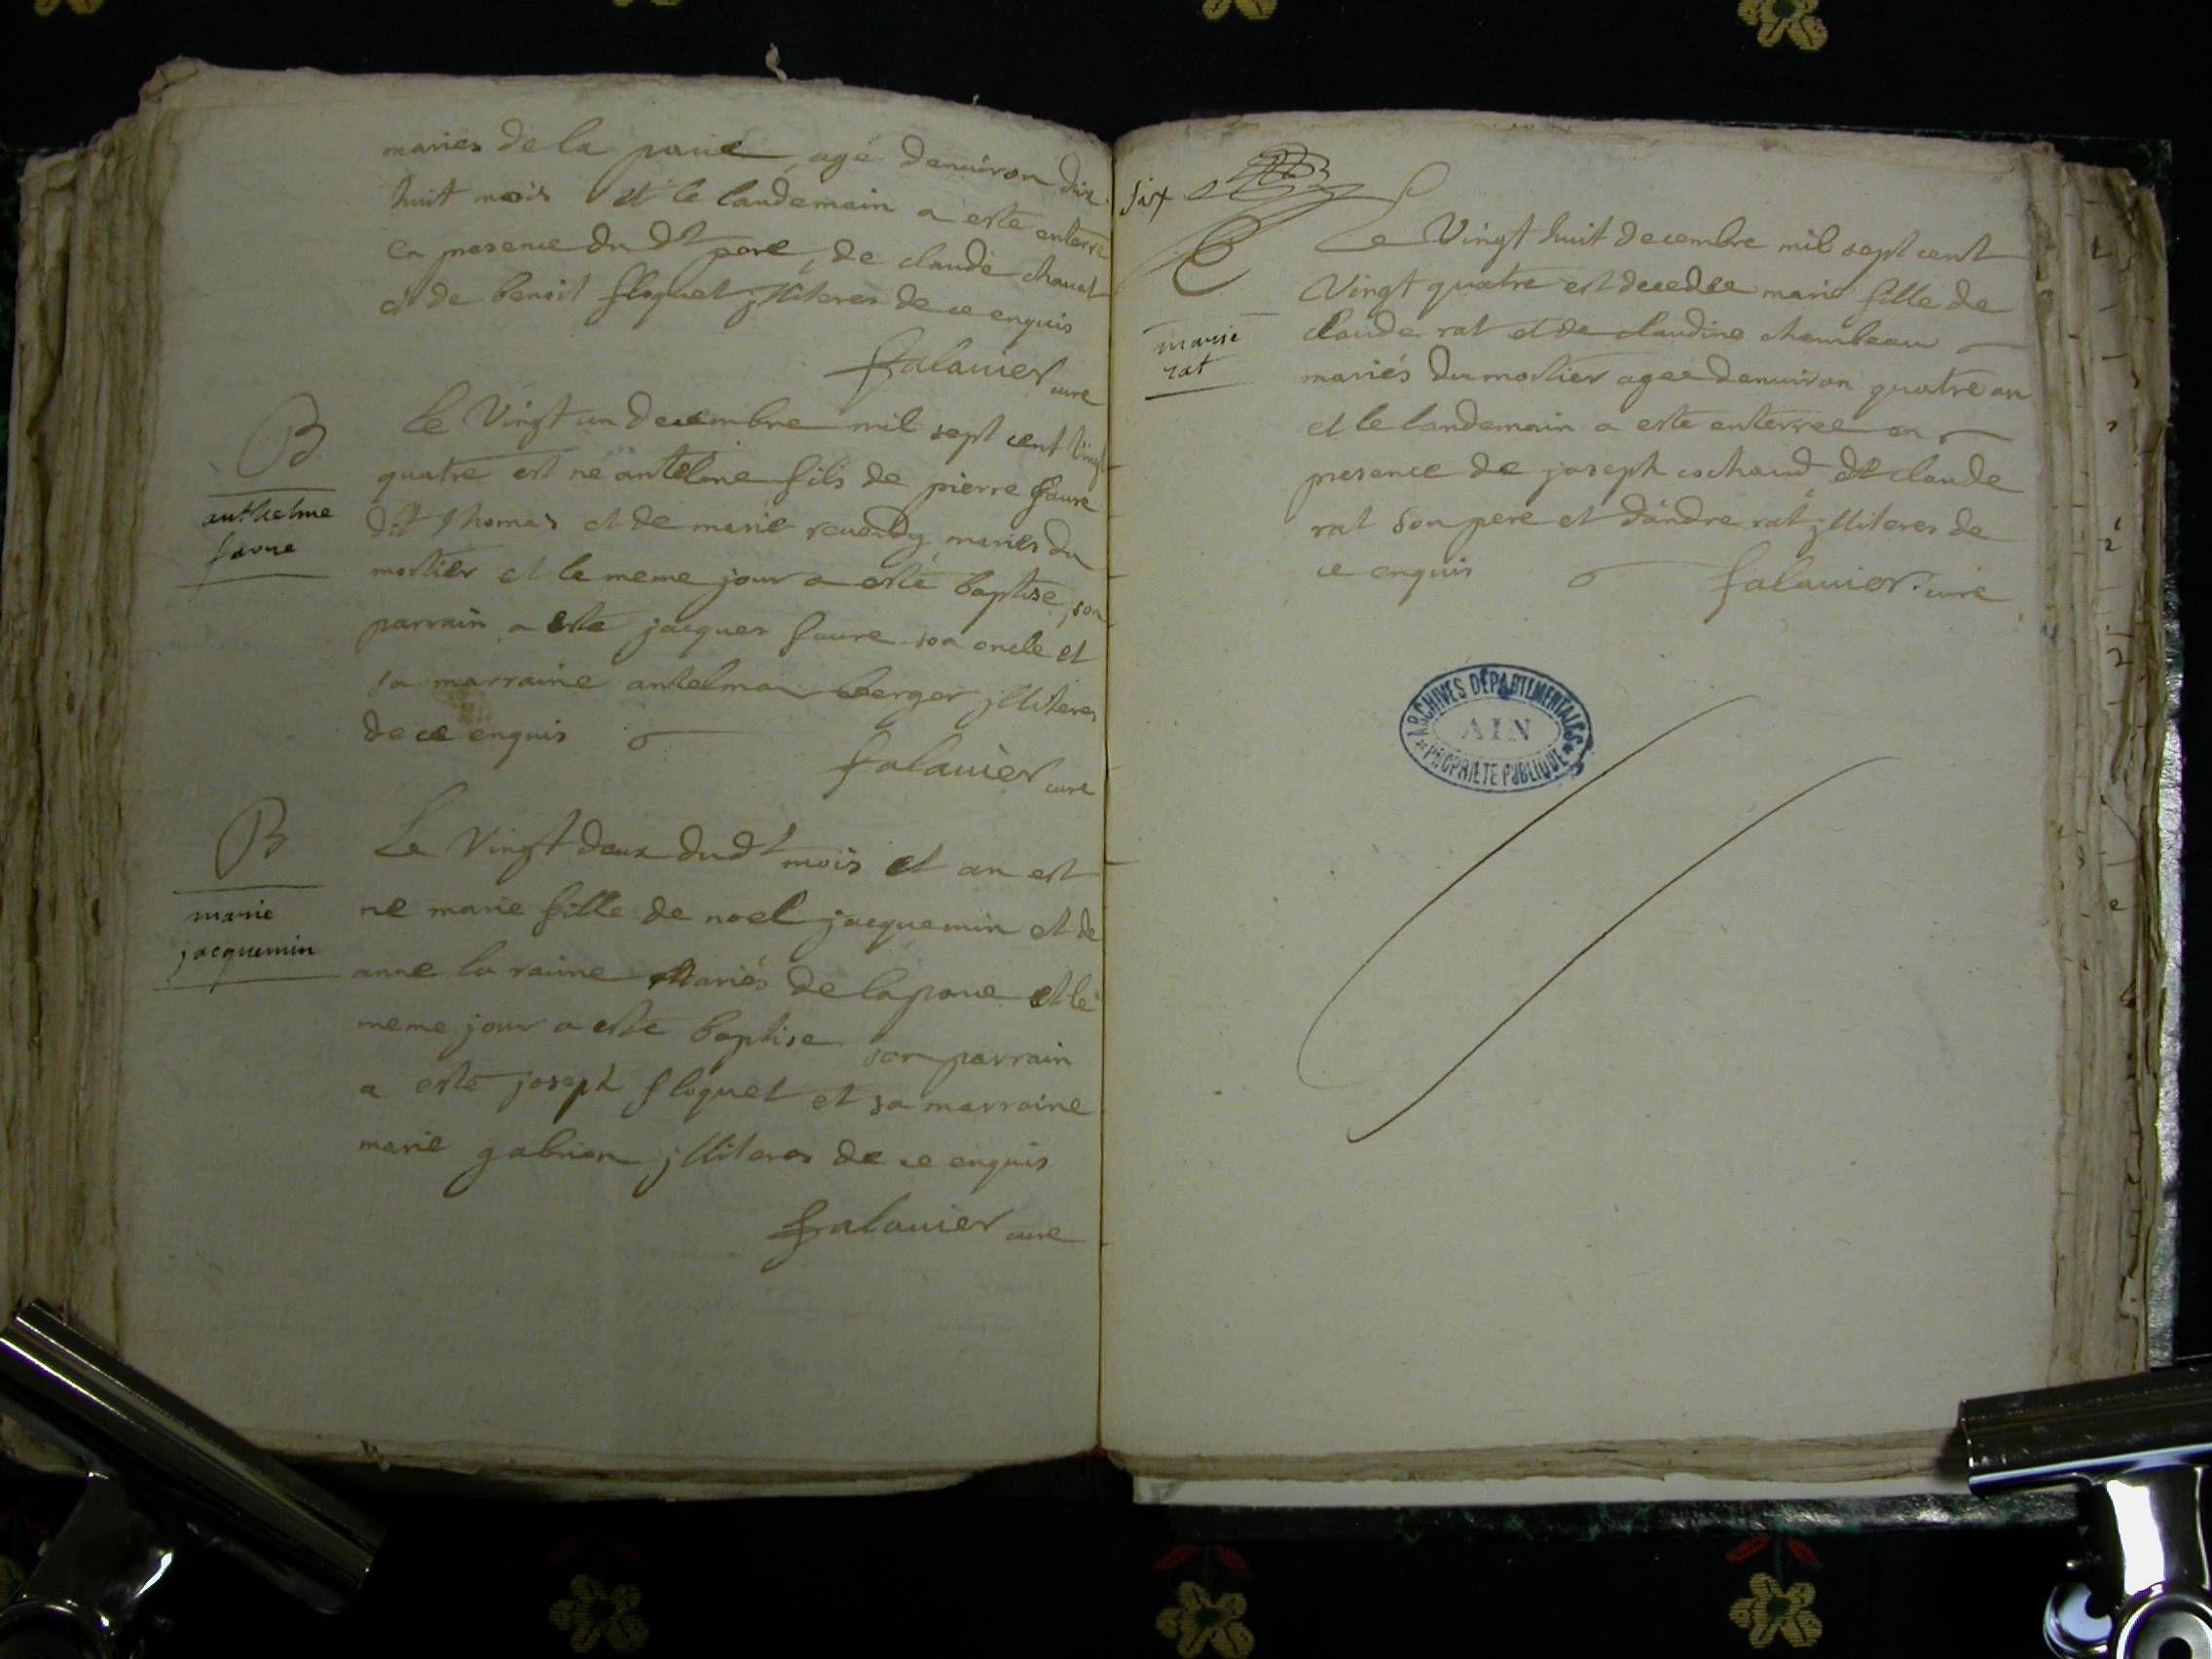 mariés de la paue, agé denuiron dix
huit mois et le landemain a esté enterré
en presence du dt pere, de claude chanal
et de benoit floquet jlliteres de ce enquis
falauier curé
B
anthelme
favre
Le Vingt un decembre mil sept cent vingt
quatre est né antelme fils de pierre faure
dit thomas et de marie reuerdy mariés du
mortier et le meme jour a esté baptisé, son
parrain a esté jacques faure son oncle et
sa marraine antelma berger jlliteres
de ce enquis
falauier curé
B
marie
jacquemin
Le Vingt deux dudt mois et an est
né marie fille de noel jacquemin et de
anne la raime Mariés de la paue et le
meme jour a esté baptisé son parrain
a esté joseph floquet et sa marraine
marie gabrion jlliteres de ce enquis
falauier curé
six
E
marie
rat
Le Vingt huit decembre mil sept cent
Vingt quatre est decedee marie fille de
claude rat et de claudine chambeau
mariés du mortier agee denuiron quatre an
et le landemain a esté enterree en
presence de joseph cochand de claude
rat son pere et d'andre rat jlliteres de
ce enquis falauier curé
ARCHIVES DÉPARTEMENTALES
AIN
PROPRIÉTÉ PUBLIQUE